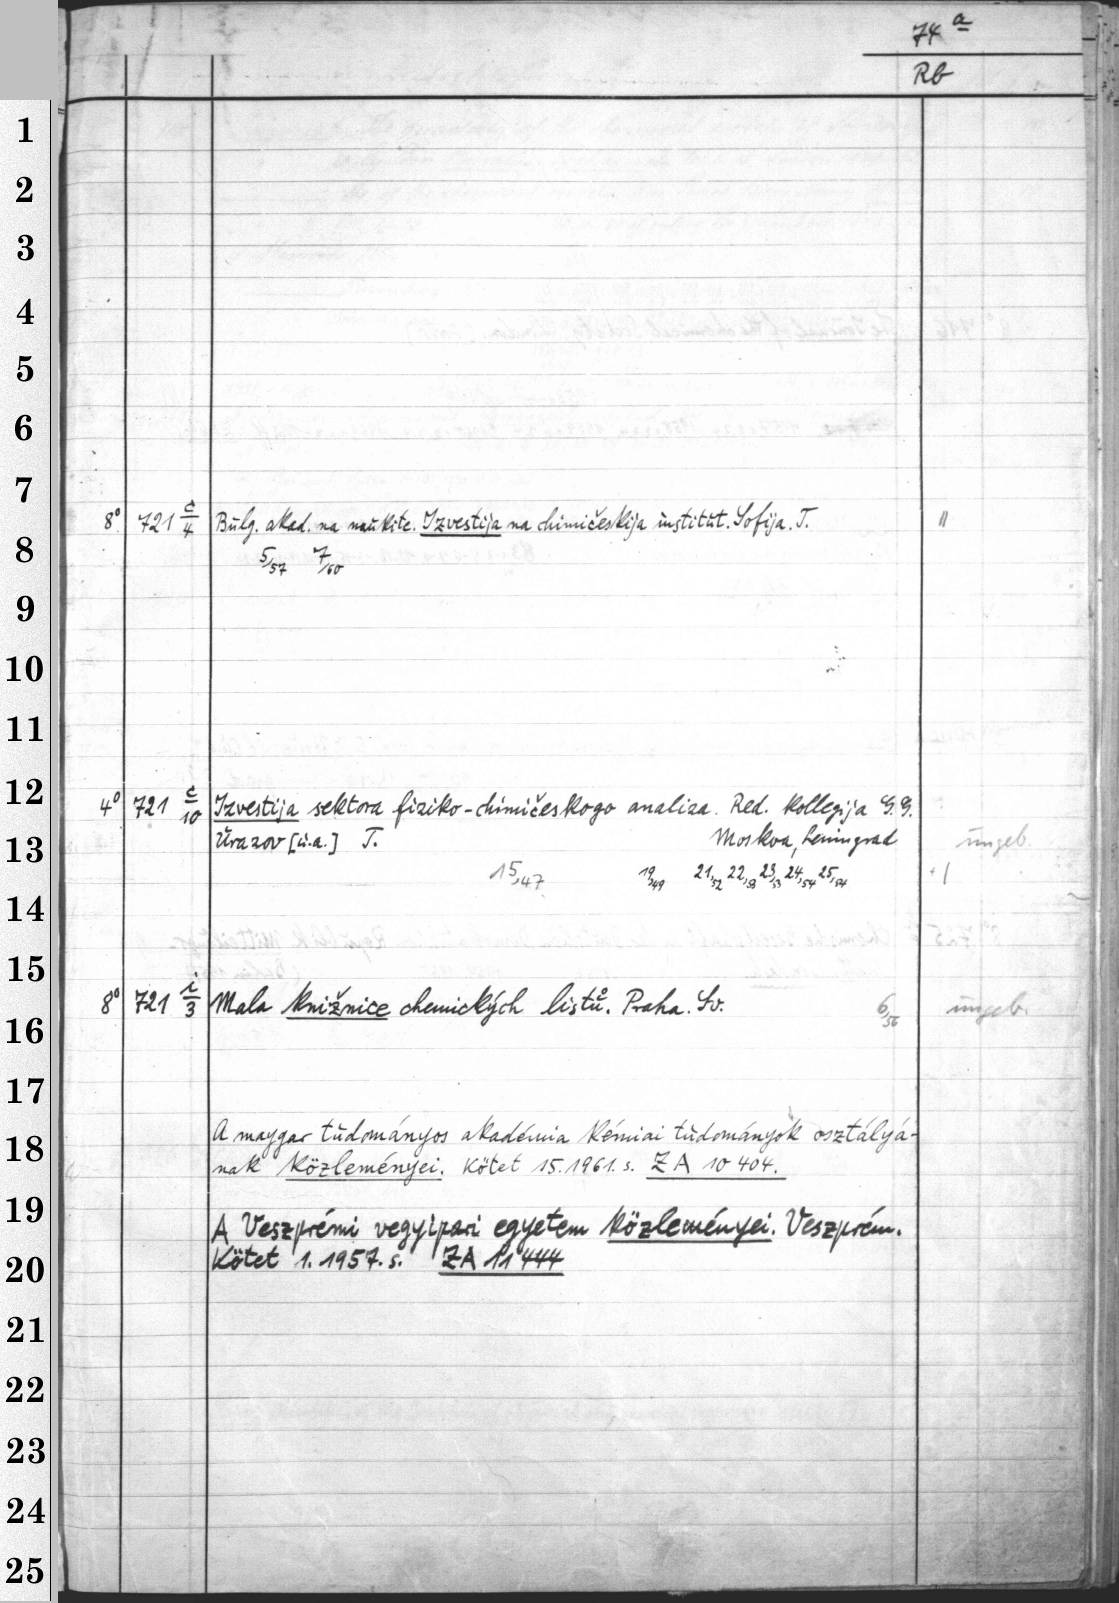 74 a
Rb
1
2
3
4
5
6
7
8° 721 c/4 Bulg. akad. na naukite. Izvestija na chimičeskija institut. Sofija. T. "
8
5/57 7/60
9
10
11
12
4° 721 c/10 Izvestija sektora fiziko-chimičeskogo analiza. Red. kollegija G.G.
13
Urazov [u.a.] T. Moskva, Leningrad ungeb.
15,47 19,49 21,52 22,53 23,53 24,54 25,54
14
15
8° 721 i/3 Mala knižnice chemických listů. Praha. Sv. 6/56 ungeb.
16
17
18
A magyar tudományos akadémia kémiai tudományok osztályá-
nak közleményei. Kötet 15.1961.s. ZA 10 404.
19
A Veszprémi vegyipari egyetem közleményei. Veszprém.
20
Kötet 1.1957.s. ZA 11 444
21
22
23
24
25